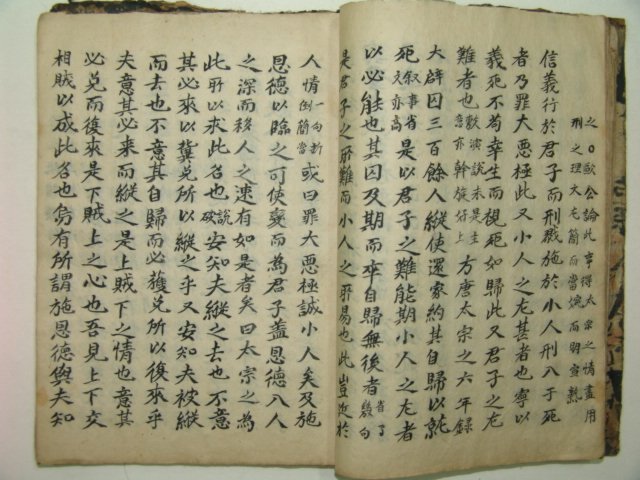 之〇歐公論此事得太宗之情盡用
刑之理大尤簡而當婉而明宜熟
信義行於君子而刑戮施於小人刑入于死
者乃罪大惡極此又小人之尤甚者也寧以
義死不苟幸生而視死如歸此又君子之尤
難者也數演說未是主意亦斡旋好上方唐太宗之六年錄
大辟囚三百餘人縱使還家約其自歸以就
死叙事省文亦高是以君子之難能期小人之尤者
以必能也其囚及期而卒自歸無後者省了幾句
是君子之所難而小人之所易也此豈近於
人情一句斷倒簡當或曰罪大惡極誠小人矣及施
恩德以臨之可使變而為君子盖恩德入人
之深而移人之速有如是者矣曰太宗之為
此所以求此名也說破安知夫縱之去也不意
其必來以冀免所以縱之乎又安知夫被縱
而去也不意其自歸而必獲免所以復來乎
夫意其必來而縱之是上賊下之情也意其
必免而復來是下賊上之心也吾見上下交
相賊以成此名也烏有所謂施恩德與夫知